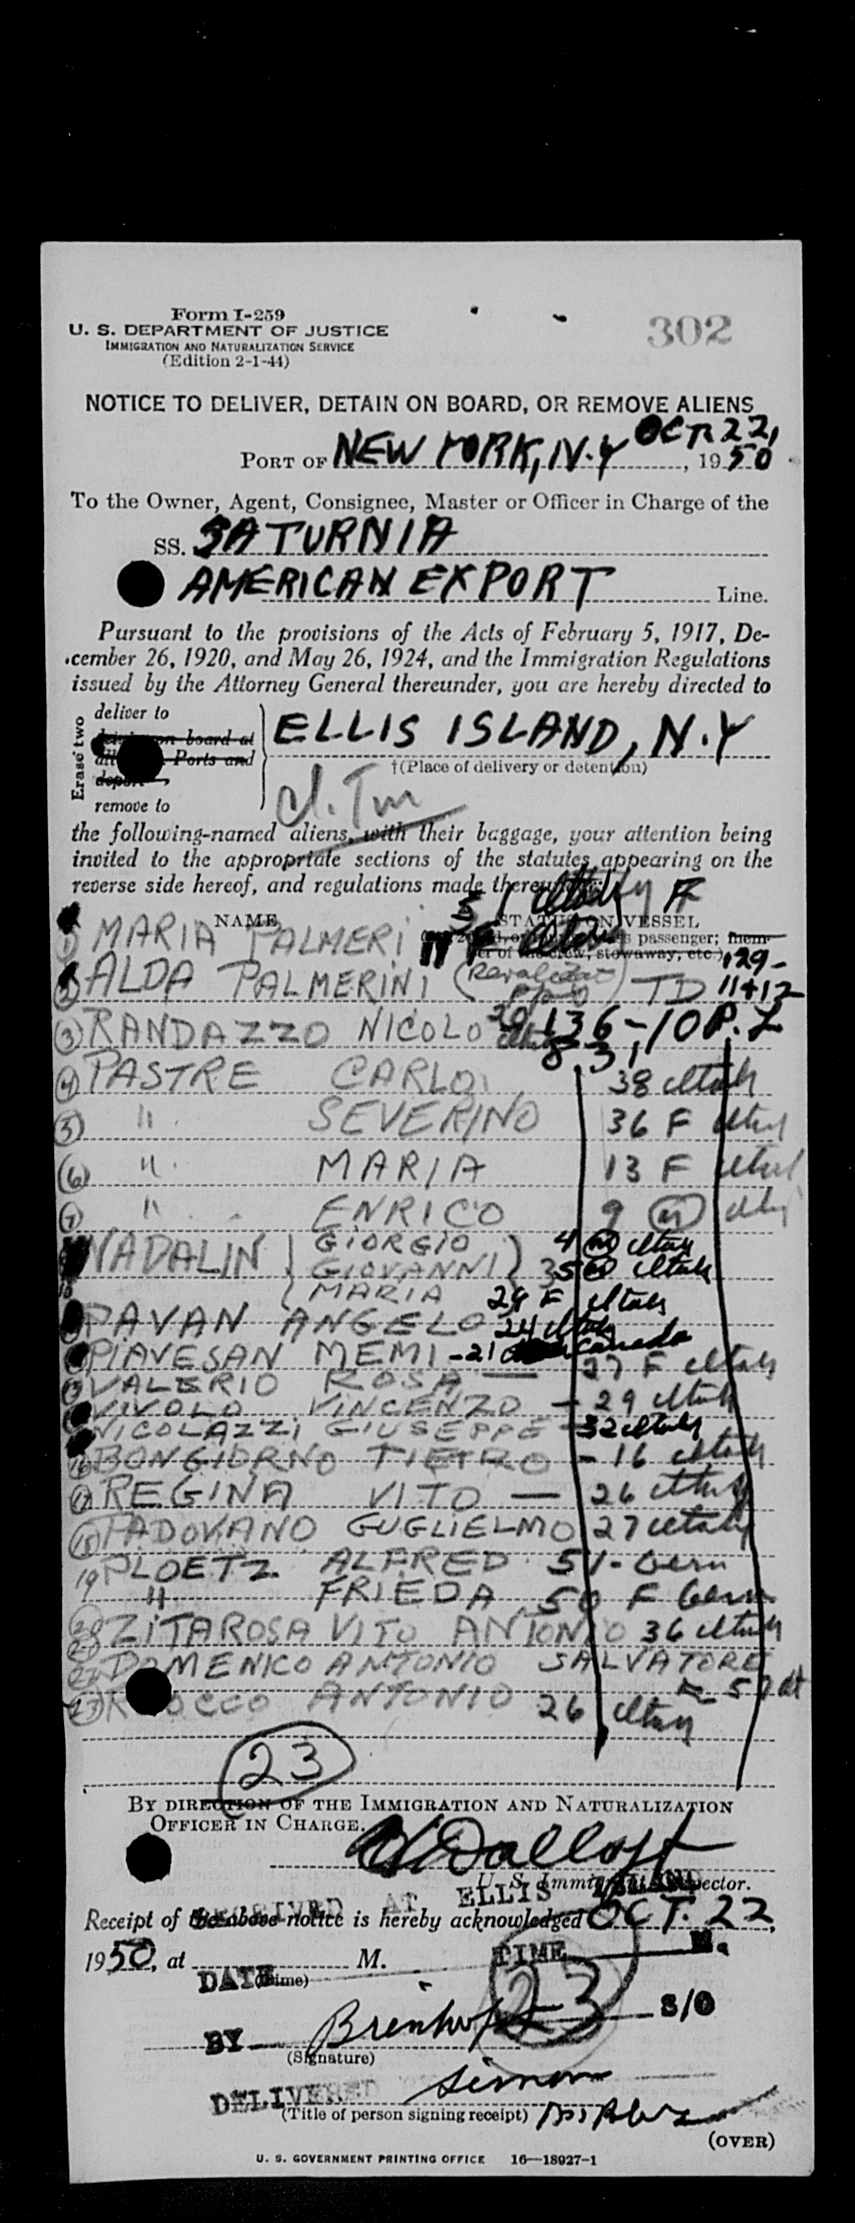 Form I-259
302
U. S. DEPARTMENT OF JUSTICE
IMMIGRATION AND NATURALIZATION SERVICE
(Edition 2-1-44)
NOTICE TO DELIVER, DETAIN ON BOARD, OR REMOVE ALIENS
PORT OF NEW YORK, N.Y OCT 22, 1950
To the Owner, Agent, Consignee, Master or Officer in Charge of the
SS. SATURNIA
AMERICAN EXPORT Line.
Pursuant to the provisions of the Acts of February 5, 1917, De-
cember 26, 1920, and May 26, 1924, and the Immigration Regulations
issued by the Attorney General thereunder, you are hereby directed to
Erase two
deliver to
on board at
Ports and
remove to
ELLIS ISLAND, N.Y
†(Place of delivery or detention)
the following-named aliens, with their baggage, your attention being
invited to the appropriate sections of the statutes appearing on the
reverse side hereof, and regulations made
NAME
STATUS ON VESSEL
passenger; mem-
stowaway, etc.)
1 MARIA PALMERI
2 ALDA PALMERINI TD 11+12
129-
3 RANDAZZO NICOLO 136-10 P.L
4 PASTRE CARLO 38 Italy
5 " SEVERINO 36 F Italy
6 " MARIA 13 F Italy
7 " ENRICO 9 M Italy
NADALIN GIORGIO 4 M Italy
GIOVANNI 5 M Italy
MARIA 29 F Italy
PAVAN ANGELO 24 Italy
PIAVESAN MEMI -21 Canada
13 VALERIO ROSA — 27 F Italy
VIVOLO VINCENZO - 29 Italy
NICOLAZZI GIUSEPPE 32 Italy
16 BONGIORNO PIETRO - 16 Italy
17 REGINA VITO — 26 Italy
18 PADOVANO GUGLIELMO 27 Italy
19 PLOETZ ALFRED 51- Germ
" FRIEDA 50 F Germ
ZITAROSA VITO ANTONIO 36 Italy
22 DOMENICO ANTONIO SALVATORE
57 It
23 ROCCO ANTONIO 26 Italy
23
BY DIRECTION OF THE IMMIGRATION AND NATURALIZATION
OFFICER IN CHARGE.
U. S. Immigrant Inspector.
RECEIVED AT ELLIS ISLAND
Receipt of the above notice is hereby acknowledged OCT. 22,
1950, at M.
(Time)
DATE TIME M.
23
BY S/O
(Signature)
DELIVERED
(Title of person signing receipt)
(OVER)
U. S. GOVERNMENT PRINTING OFFICE 16—18027-1